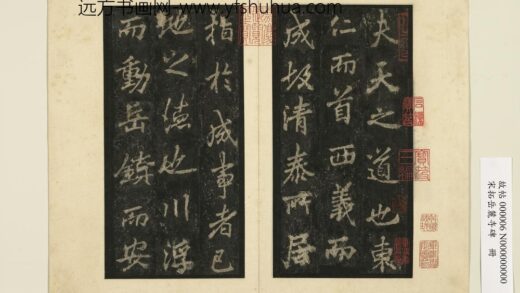 远方书画网-www.yfshuhua.com
夫天之道也東
仁而首西義而
成故清泰所居
指於成事者已
地之德也川浮
而動岳鎮而安
故帖 000006 N000000000
宋拓岳麓寺碑 册